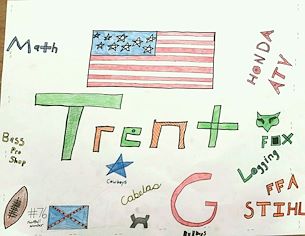 Math
HONDA
ATV
Trent
FOX
Bass
Pro
Shop
Logging
Cowboys
Cabelas
FFA
STIHL
#76
football
number
G
Bulldogs